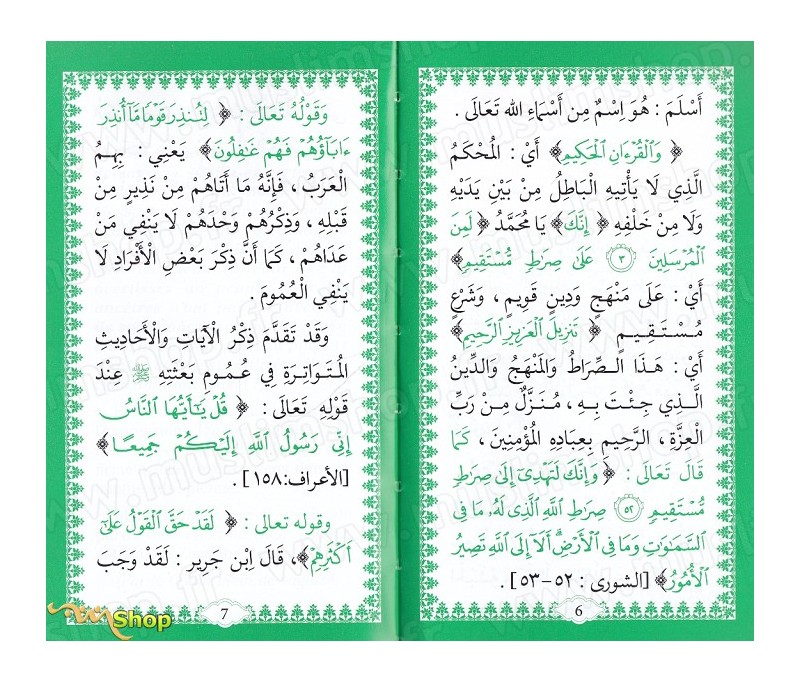 أَسْلَمَ : هُوَ اِسْمٌ مِن أَسْمَاءِ الله تَعَالَى .
﴿ وَالْقُرْءَانِ الْحَكِيمِ﴾ أَيْ : الْمُحْكَمُ
الَّذِي لَا يَأْتِيهِ الْبَاطِلُ مِنْ بَيْنِ يَدَيْهِ
وَلَا مِنْ خَلْفِهِ ﴿ إِنَّكَ﴾ يَا مُحَمَّدُ ﴿ لَمِنَ
الْمُرْسَلِينَ ٣ عَلَى صِرَٰطٍ مُّسْتَقِيمٍ﴾
أَيْ : عَلَى مَنْهَجٍ وَدِينٍ قَوِيمٍ ، وَشَرْعٍ
مُسْتَقِيمٍ ﴿ تَنزِيلَ الْعَزِيزِ الرَّحِيمِ﴾
أَيْ : هَذَا الصِّرَاطُ وَالْمَنْهَجُ وَالدِّينُ
الَّذِي جِئْتَ بِهِ ، مُنَزَّلٌ مِنْ رَبِّ
الْعِزَّةِ ، الرَّحِيمِ بِعِبَادِهِ الْمُؤْمِنِينَ ، كَمَا
قَالَ تَعَالَى : ﴿ وَإِنَّكَ لَتَهْدِىٓ إِلَىٰ صِرَٰطٍ
مُّسْتَقِيمٍ ٥٢ صِرَٰطِ اللَّهِ الَّذِى لَهُۥ مَا فِى
السَّمَٰوَٰتِ وَمَا فِى الْأَرْضِ أَلَآ إِلَى اللَّهِ تَصِيرُ
الْأُمُورُ﴾ [الشورى : ٥٢-٥٣] .
6
وَقَوْلُهُ تَعَالَى : ﴿ لِتُنذِرَ قَوْمًا مَّآ أُنذِرَ
ءَابَآؤُهُمْ فَهُمْ غَٰفِلُونَ﴾ يَعْنِي : بِهِمُ
الْعَرَبُ ، فَإِنَّهُ مَا أَتَاهُمْ مِنْ نَذِيرٍ مِنْ
قَبْلِهِ ، وَذِكْرُهُمْ وَحْدَهُمْ لَا يَنْفِي مَنْ
عَدَاهُمْ ، كَمَا أَنَّ ذِكْرَ بَعْضِ الْأَفْرَادِ لَا
يَنْفِي الْعُمُومَ .
وَقَدْ تَقَدَّمَ ذِكْرُ الْآيَاتِ وَالْأَحَادِيثِ
الْمُتَوَاتِرَةِ فِي عُمُومِ بَعْثَتِهِ ﷺ عِنْدَ
قَوْلِهِ تَعَالَى : ﴿ قُلْ يَٰٓأَيُّهَا النَّاسُ
إِنِّى رَسُولُ اللَّهِ إِلَيْكُمْ جَمِيعًا﴾
[الأعراف:١٥٨] .
وقوله تعالى : ﴿ لَقَدْ حَقَّ الْقَوْلُ عَلَىٰٓ
أَكْثَرِهِمْ﴾، قَالَ اِبْن جَرِير : لَقَدْ وَجَبَ
7
Shop